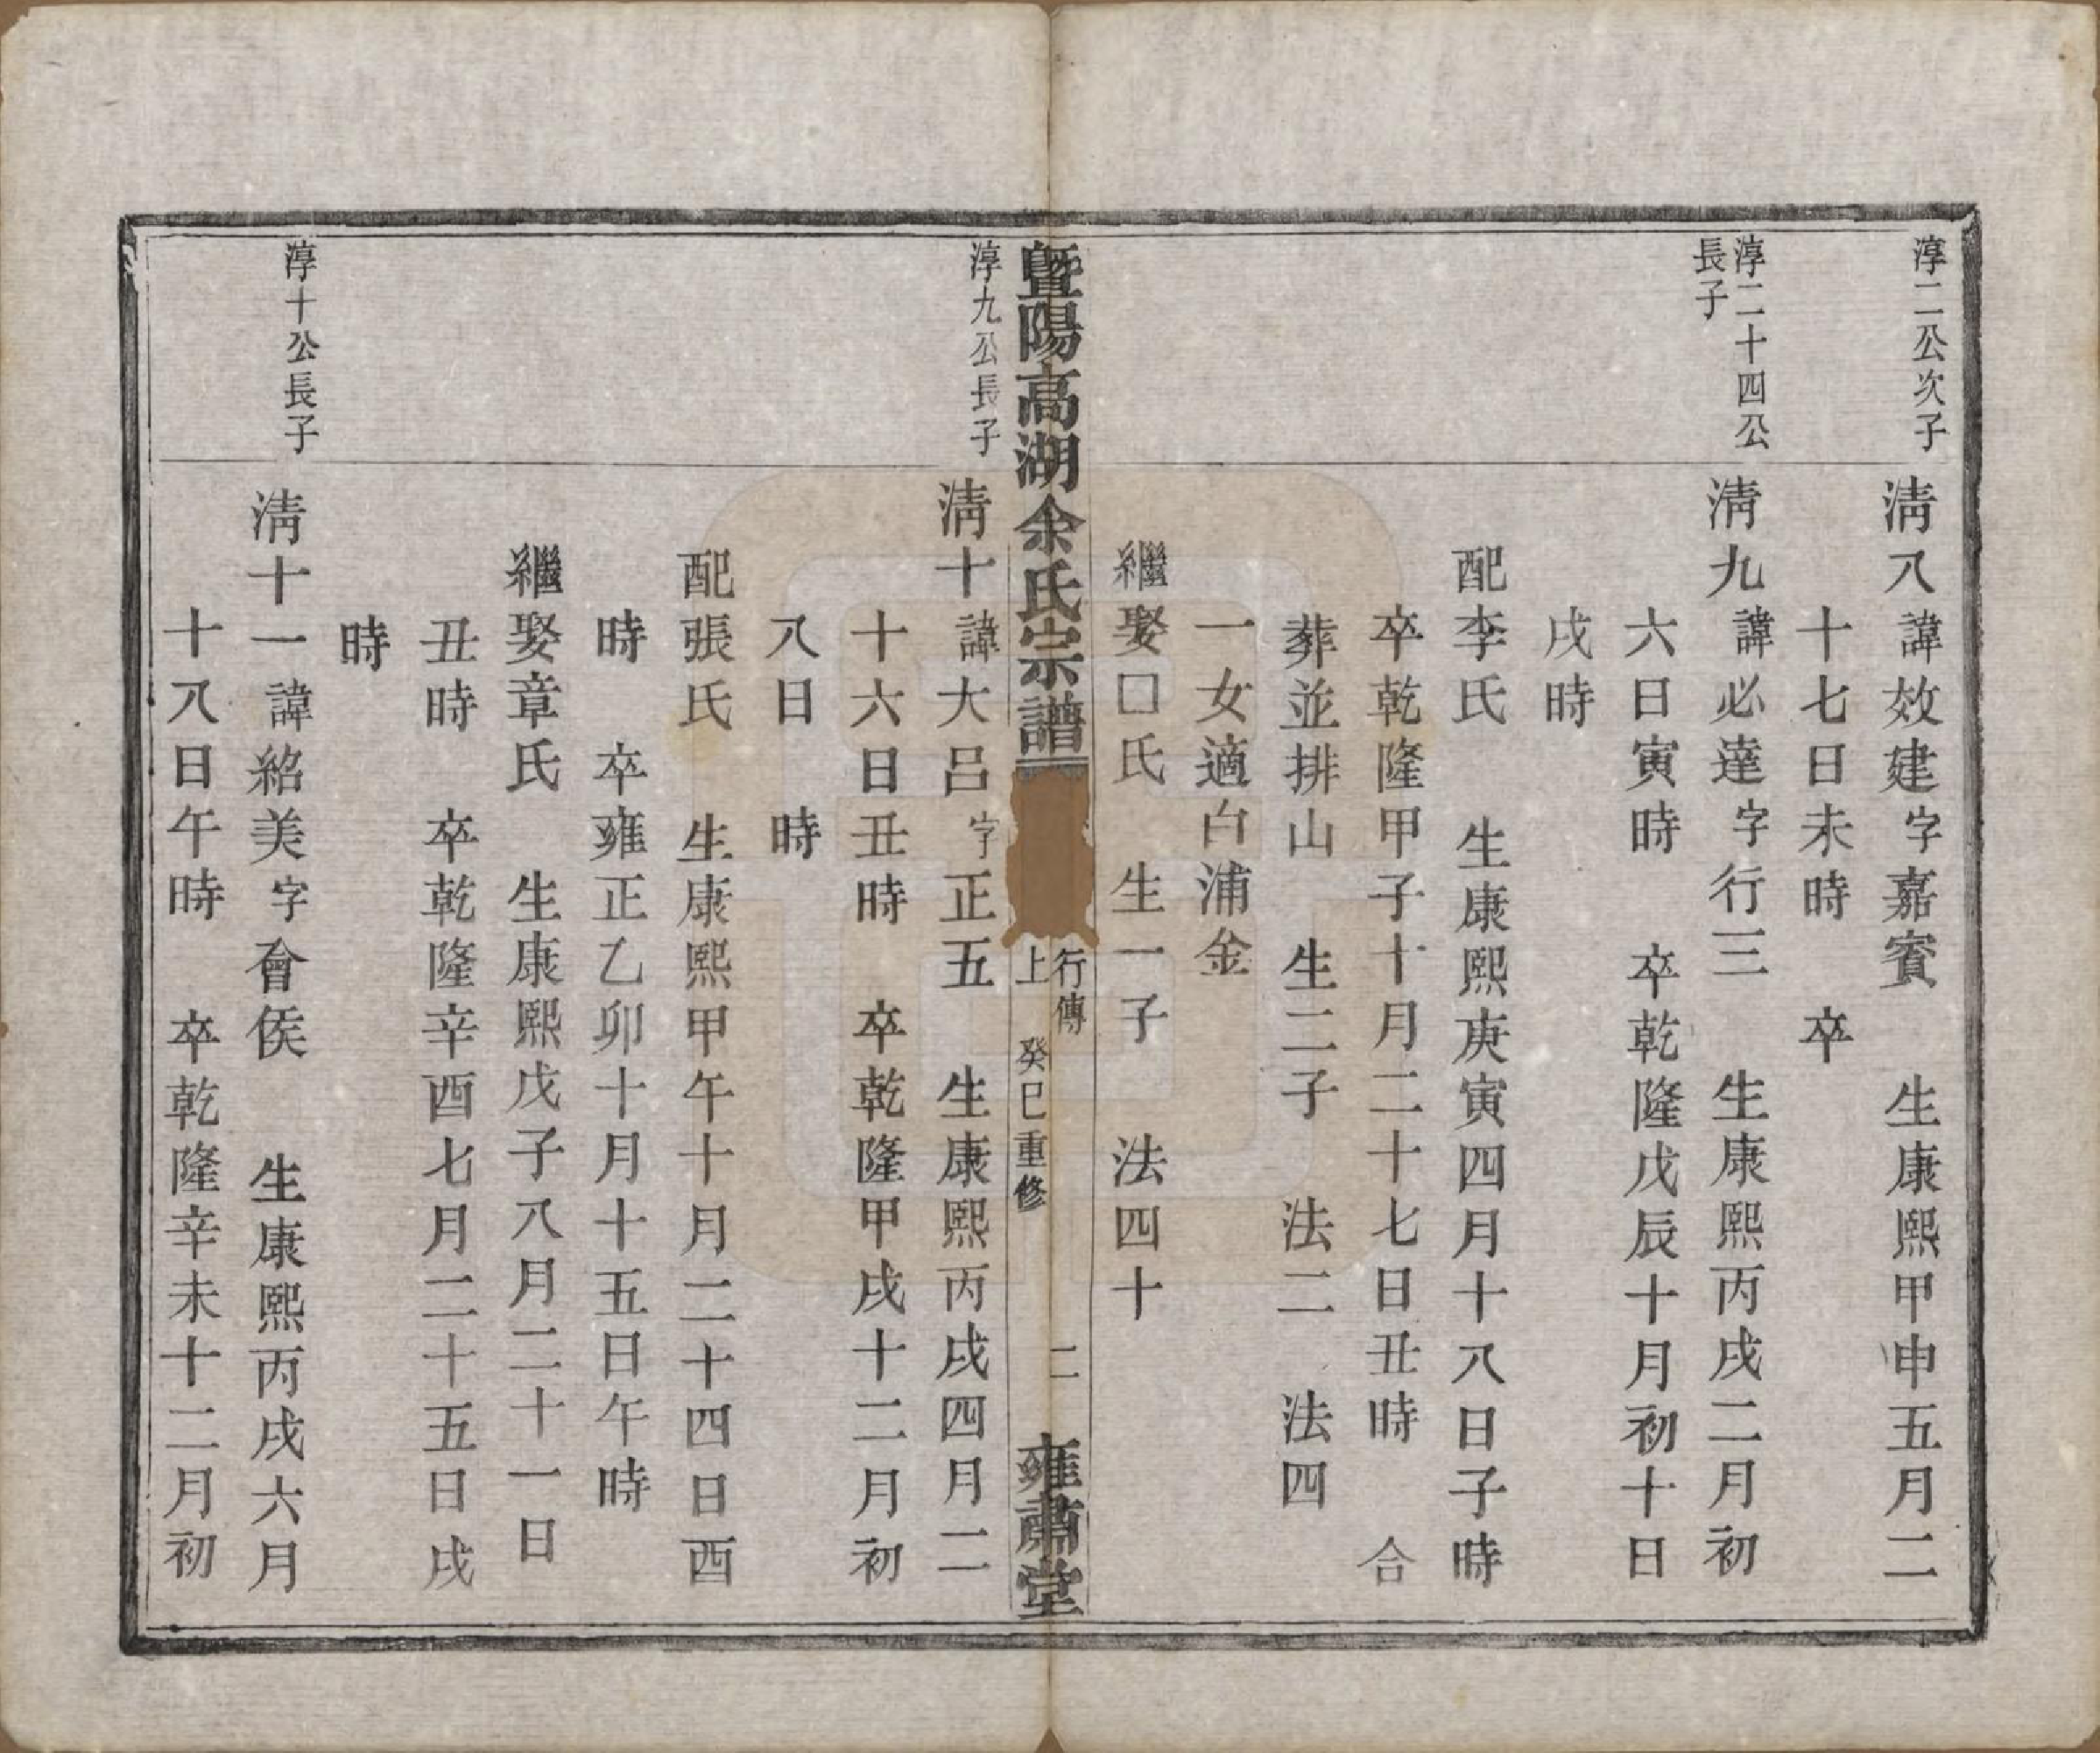 淳二公次子
清八諱效建字嘉賓　生康熙甲申五月二
十七日未時　卒
淳二十四公
長子
清九諱必達字行三　生康熙丙戌二月初
六日寅時　卒乾隆戊辰十月初十日
戌時
配李氏　生康熙庚寅四月十八日子時
卒乾隆甲子十月二十七日丑時　合
葬並排山　生二子　法二　法四
一女適白浦金
繼娶口氏　生一子　法四十
暨陽高湖余氏宗譜
行傳
上　癸巳重修
二
雍肅堂
淳九公長子
清十諱大呂字正五　生康熙丙戌四月二
十六日丑時　卒乾隆甲戌十二月初
八日　時
配張氏　生康熙甲午十月二十四日酉
時　卒雍正乙卯十月十五日午時
繼娶章氏　生康熙戊子八月二十一日
丑時　卒乾隆辛酉七月二十五日戌
時
淳十公長子
清十一諱紹美字會侯　生康熙丙戌六月
十八日午時　卒乾隆辛未十二月初